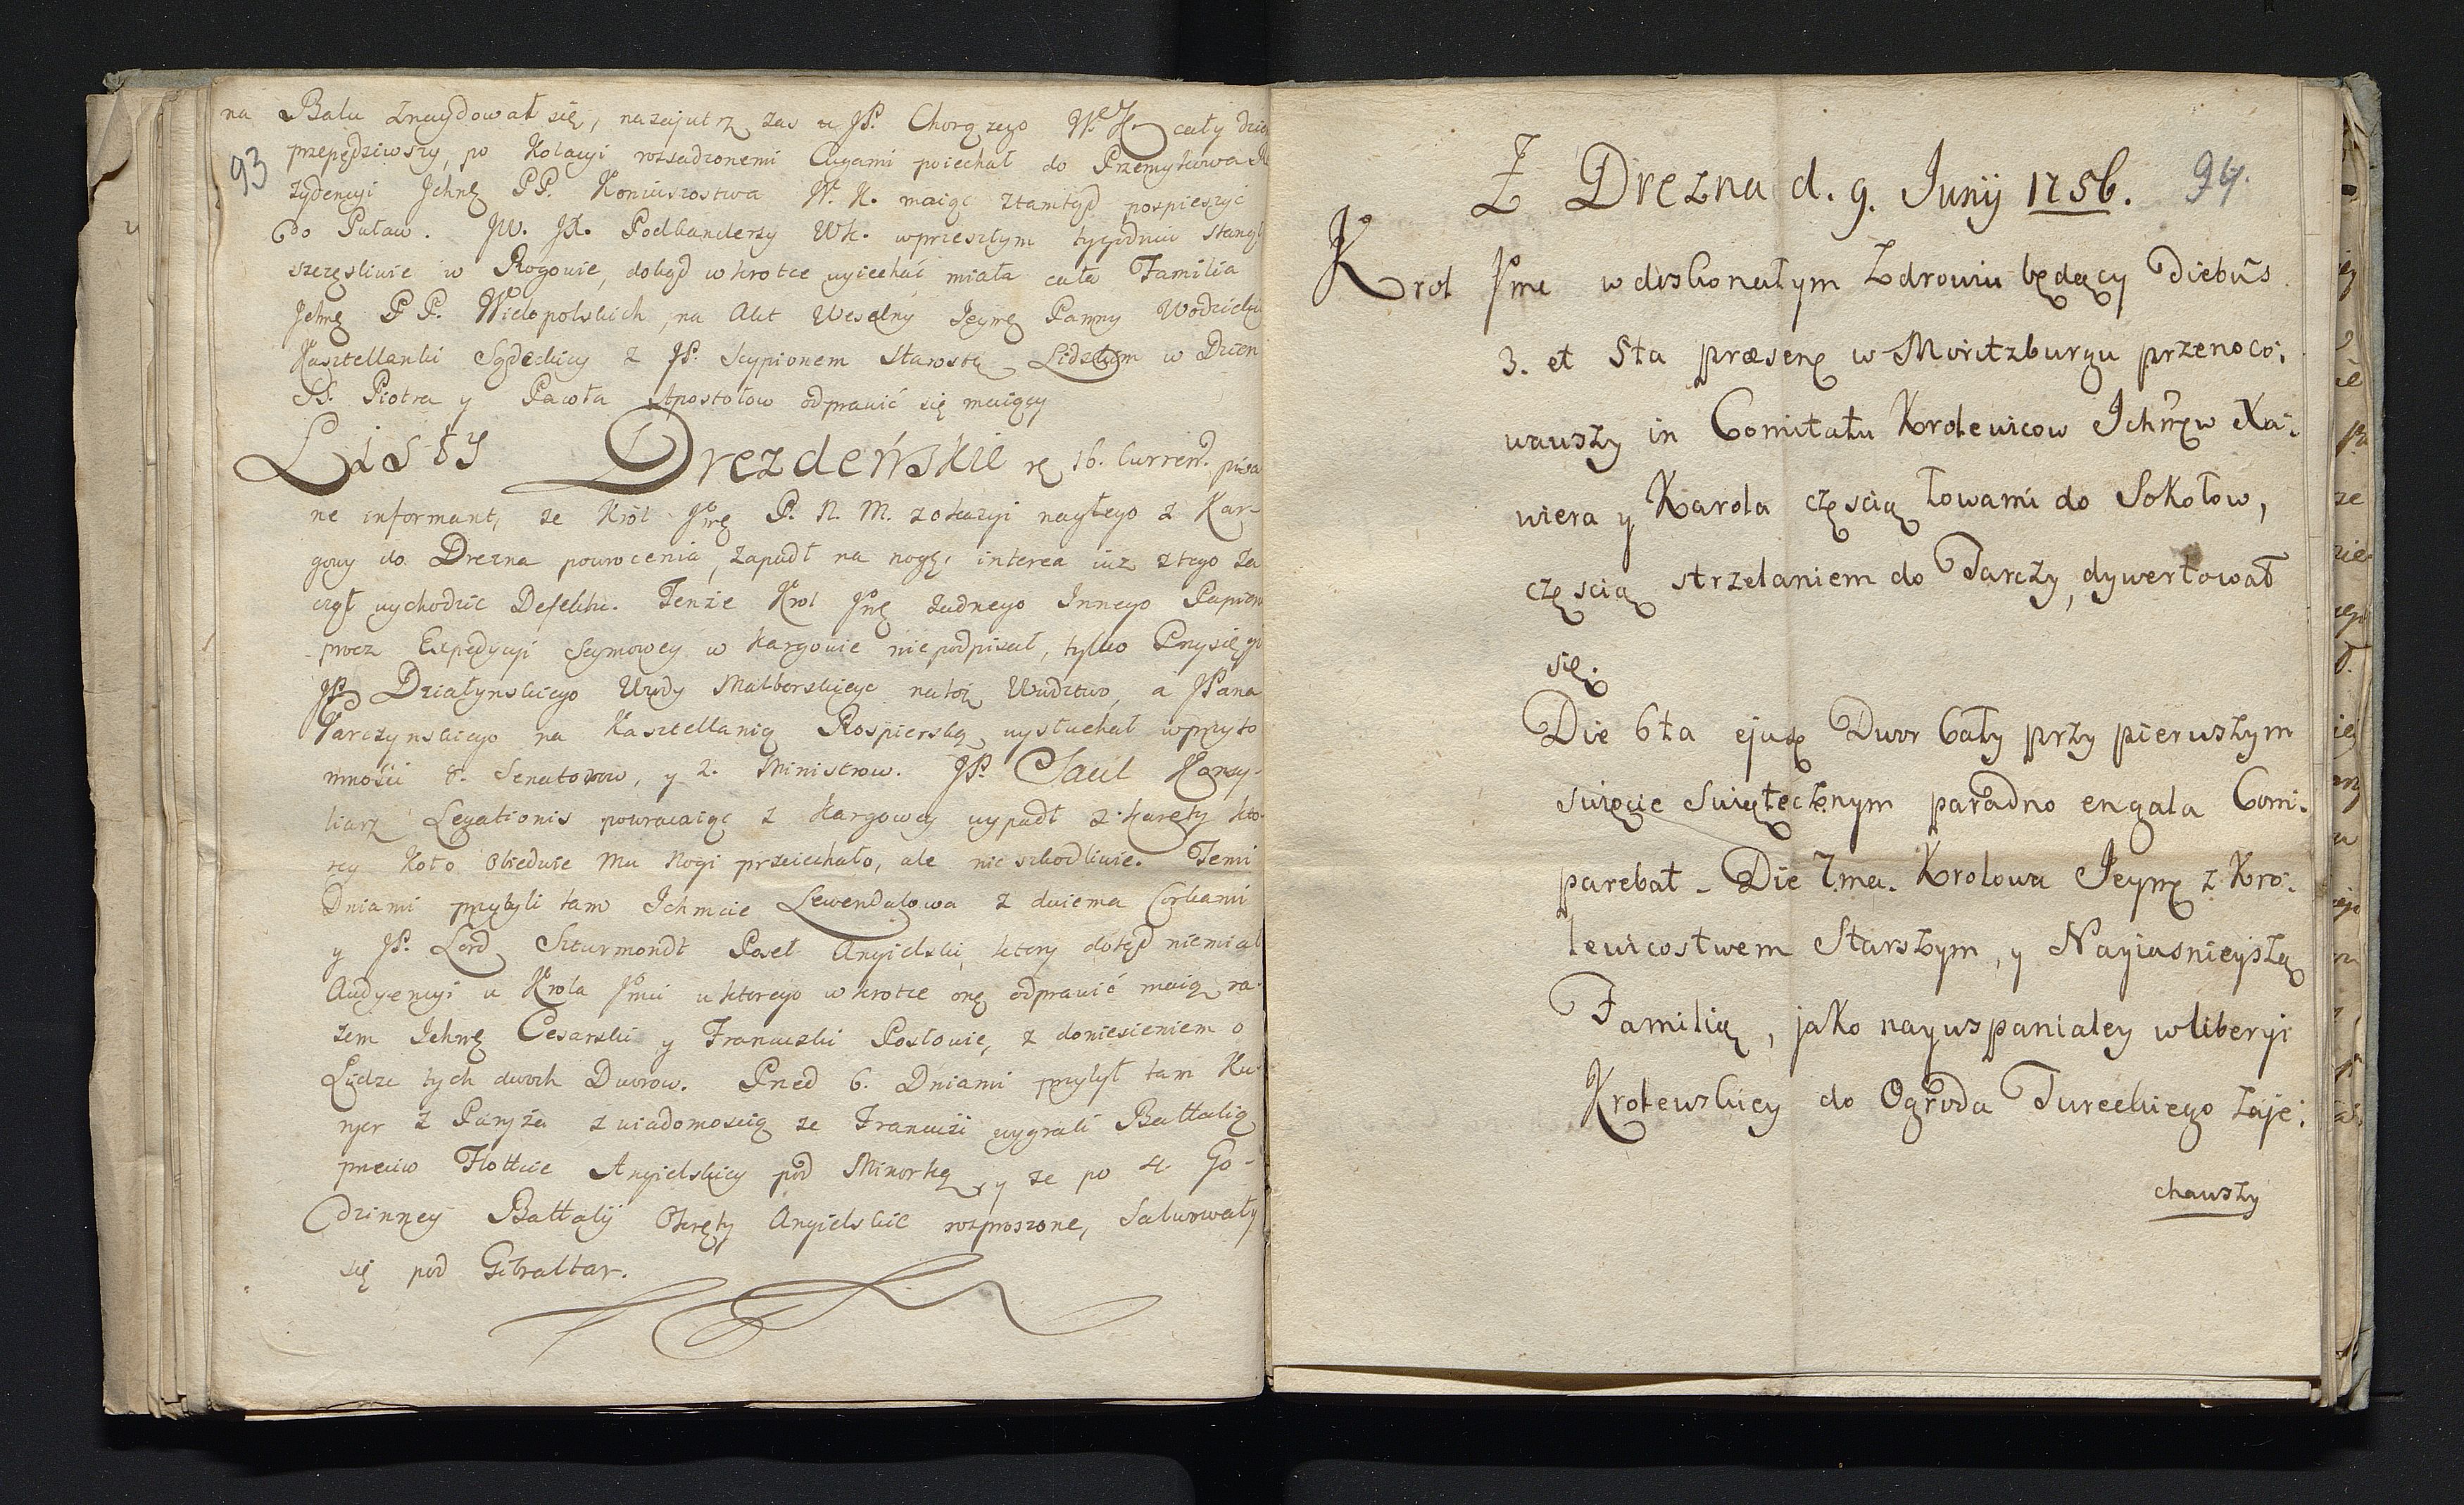 na Balu znaydował się, nazajutrz zas u JP. Chorązego W. K. cały dzie
93
przepędziwszy, po Kolacyi rozsadzonemi Cugami poiechał do Przemykowa Re
zydencyi Jchmę PP. Koniuszostwa W. K. maiąc ztamtąd pospieszyć
do Puław. JW. JX. Podkanclerzy WK. wprzeszłym tygodniu stanął
szczęsliwie w Rogowie, dokąd w krotce wyiechać miała cała Familia
Jchmę PP. Wielopolskich, na Akt Weselny Jeymę Panny Wodzicky
Kasztellanki Sądeckiey z JP. Scypionem Starostą Lidzkim w Dzien
SS. Piotra y Pawła Apostołow odprawić się maiący
Listy Drezdeńskie rę 16. Curren. pisa
ne informant, ze Król Jmę P. N. M. zokazyi nagłego z Kar-
gowy do Drezna powrocenia, zapadł na nogę, interea iuz ztego za
czął wychodzic Defektu. Tenże Krol Jmę zadnego Innego Papieru
procz Expedycyi Seymowey w Kargowie niepodpisał, tylko Przysięgi
JP. Działynskiego Wwdy Malborskiego natoż Wwdztwo, a JPana
Karczynskiego na Kasztellanią Rospierską wysłuchał wprzyto
mności 8. Senatorow, y 2. Ministrow. JP. Saul Konsy-
liarz Legationis powracaiąc z Kargowey wypadł z karety kto-
rey Koło obiedwie mu Nogi przeiechało, ale nie szkodliwie. Temi
Dniami przybyli tam Ichmcie Lewendalowa z dwiema Corkami
y JP. Lord Szturmondt Poseł Angielski, ktory dotąd niemiał
Audyencyi u Krola Jmci u ktorego wkrotce onę odprawić maią ra-
zem Jchmę Cesarski y Francuski Posłowie, z doniesieniem o
Lidze tych dwoch Dworow. Przed 6. Dniami przybył tam Ku-
ryer z Paryża z wiadomoscią ze Francuzi wygrali Battalią
przeciw Flottcie Angielskiey pod Minorką, y ze po 4. Go-
dzinney Battalij Okręty Angielskie rozproszone, Salwowały
się pod Gibraltar.
Z Drezna d. 9. Junij 1756. 94.
Krol Jmc wdoskonałym Zdrowiu będący Diebus
3. et 5ta præsenę w Moritzburgu przenoco:
wawszy in Comitatu Krolewicow Ichmęw Xa:
wiera y Karola częscią łowami do Sokołow,
częscią strzelaniem do Tarczy, dywertował
się.
Die 6ta ejusę Dwor Cały przy pierwszym
swięcie Swiątecznym paradno engala Com:
parebat. Die 7.ma. Krolowa Jeymę z Kro:
lewicostwem Starszym, y Nayiasnieyszą
Familią, jako naywspanialey wliberyi
Krolewskiey do Ogroda Tureckiego zaje:
chawszy